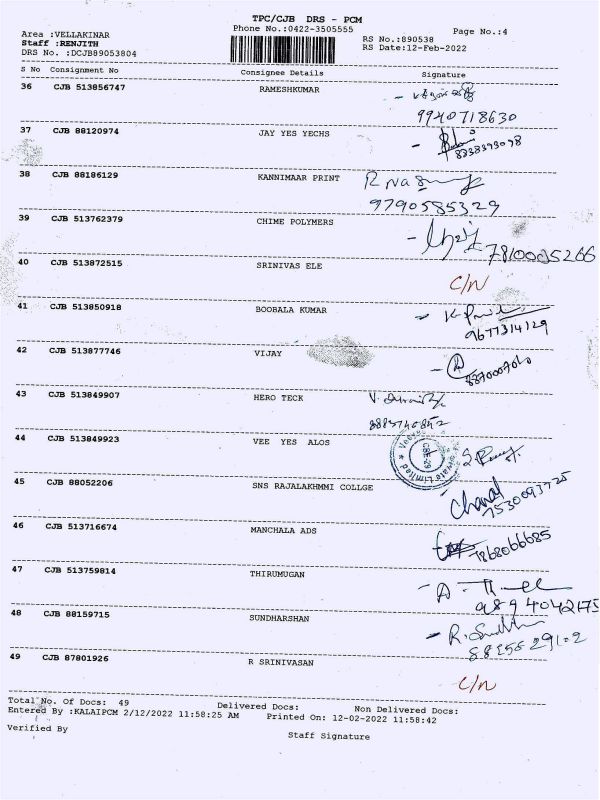 TPC/CJB DRS - PCM
Phone No.:0422-3505555
Page No.:4
Area :VELLAKINAR
Staff :RENJITH
DRS No. :DCJB89053804
RS No.:890538
RS Date:12-Feb-2022
S No Consignment No Consignee Details Signature
36 CJB 513856747 RAMESHKUMAR
9940718630
37 CJB 88120974 JAY YES YECHS
8838393098
38 CJB 88186129 KANNIMAAR PRINT
9790585329
39 CJB 513762379 CHIME POLYMERS
7810005266
40 CJB 513872515 SRINIVAS ELE C/N
41 CJB 513850918 BOOBALA KUMAR
9677314129
42 CJB 513877746 VIJAY
8870007010
43 CJB 513849907 HERO TECK
8883746842
44 CJB 513849923 VEE YES ALOS
Private Limited
CBE-29
45 CJB 88052206 SNS RAJALAKHMMI COLLGE
7530093725
46 CJB 513716674 MANCHALA ADS
7868066685
47 CJB 513759814 THIRUMUGAN
9894042175
48 CJB 88159715 SUNDHARSHAN
49 CJB 87801926 R SRINIVASAN C/N
Total No. Of Docs: 49 Delivered Docs: Non Delivered Docs:
Entered By :KALAIPCM 2/12/2022 11:58:25 AM Printed On: 12-02-2022 11:58:42
Verified By
Staff Signature